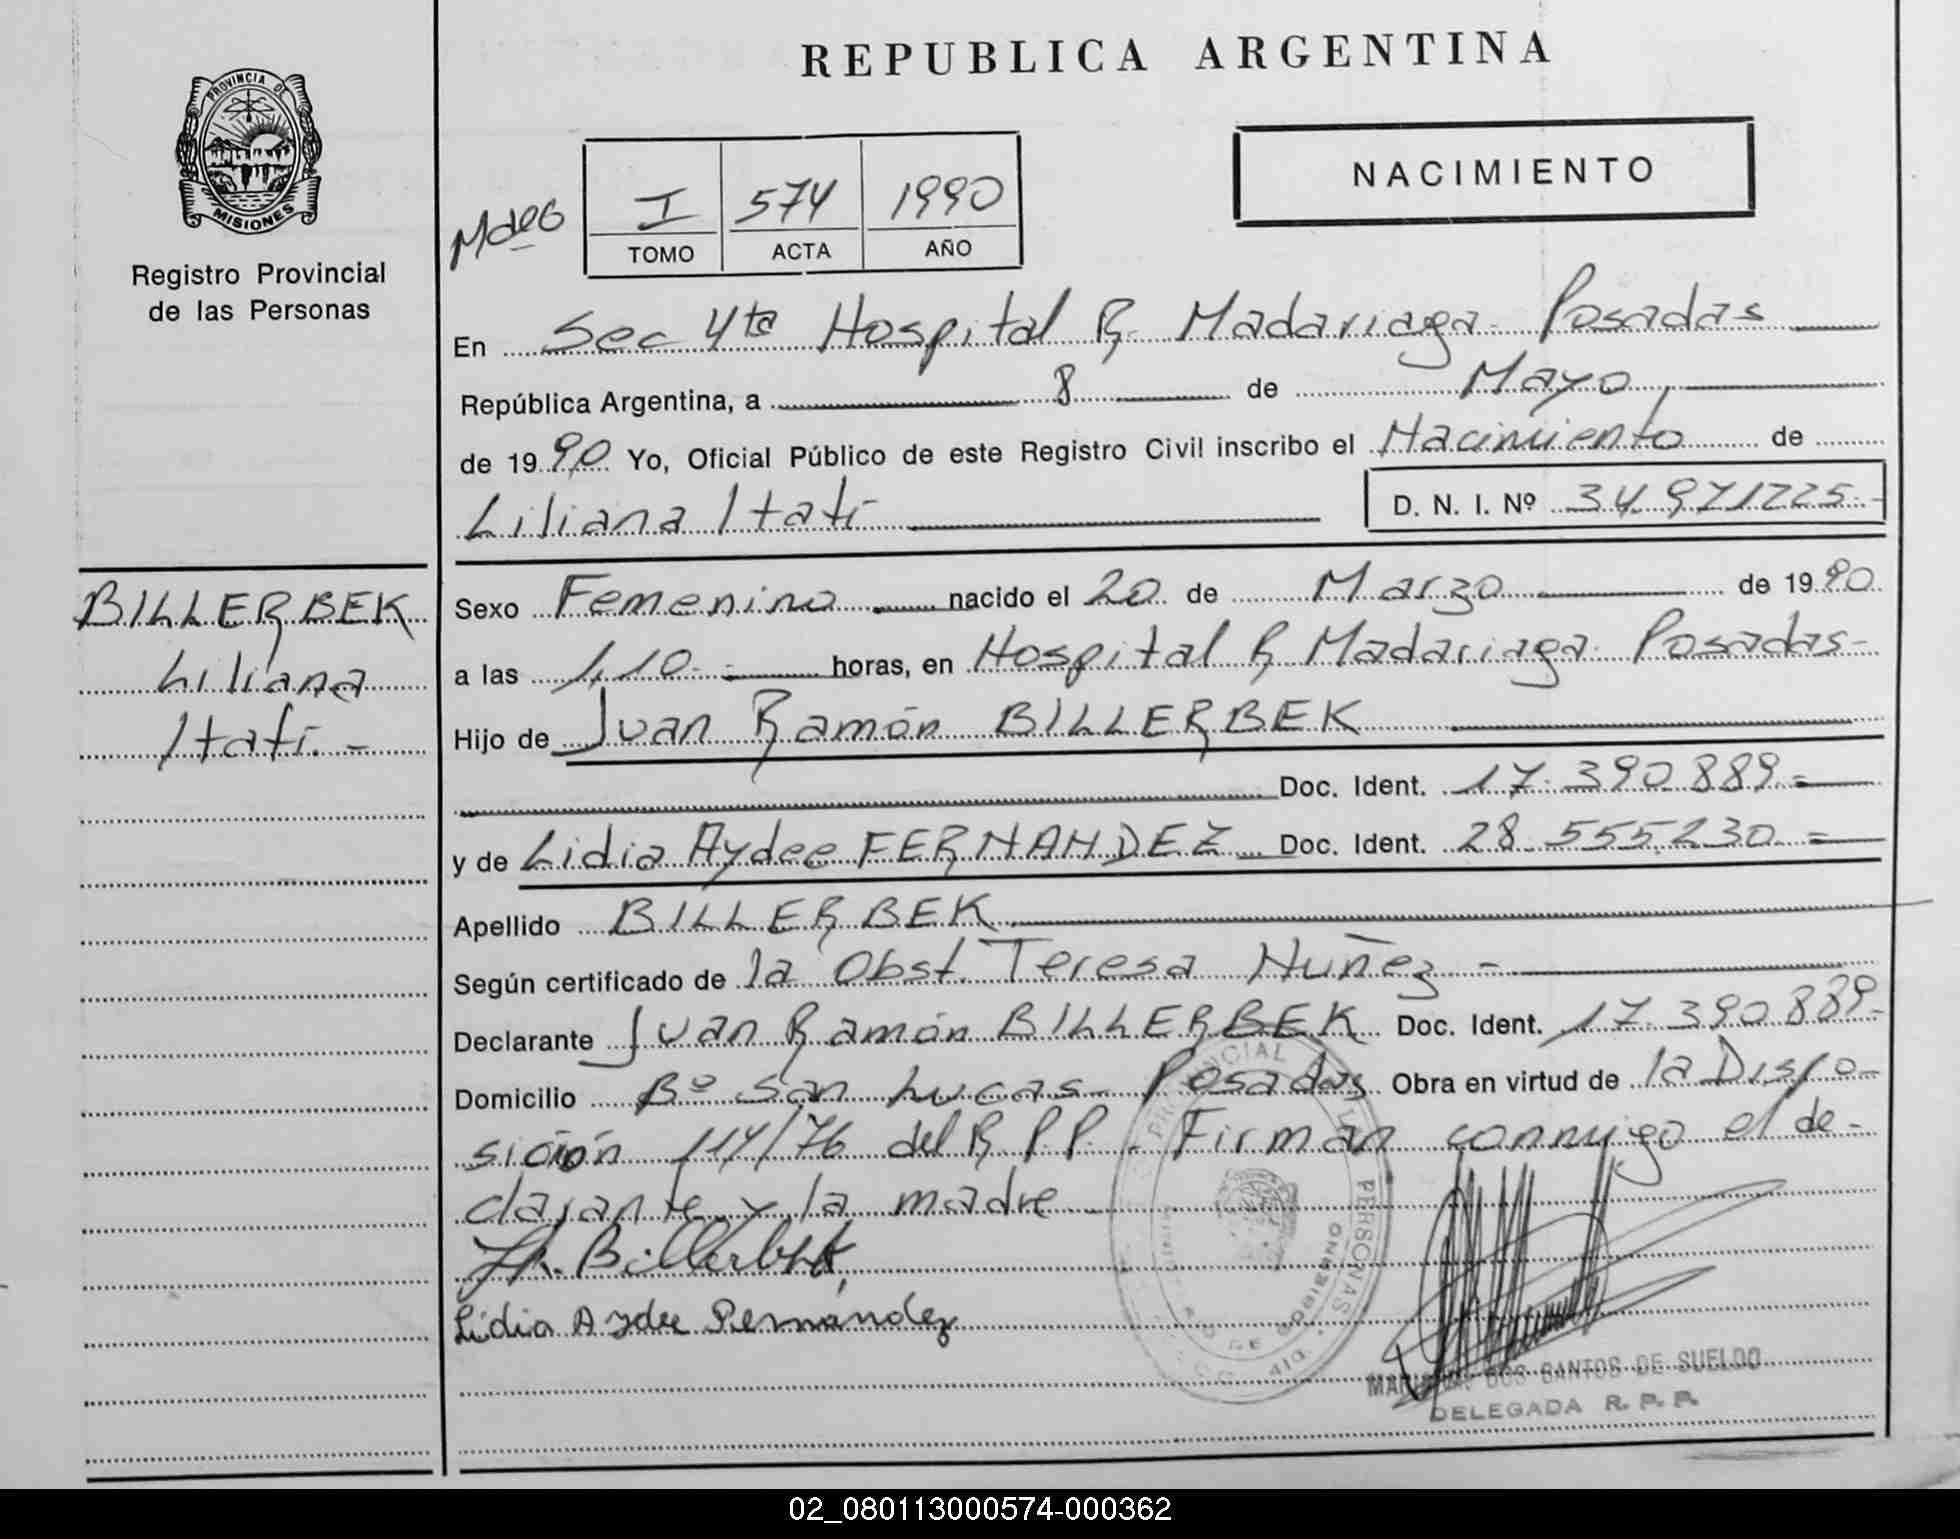 REPUBLICA ARGENTINA
PROVINCIA DE
MISIONES
Registro Provincial
de las Personas
NACIMIENTO
I 574 1990
TOMO ACTA AÑO
En Sec 4ta Hospital R. Madariaga - Posadas
República Argentina, a 8 de Mayo
de 1990 Yo, Oficial Público de este Registro Civil inscribo el Nacimiento de
Liliana Itatí D. N. I. Nº 34.971225.-
BILLERBEK
Liliana
Itatí.-
Sexo Femenino nacido el 20 de Marzo de 1990
a las 1,10.- horas, en Hospital R Madariaga. Posadas-
Hijo de Juan Ramón BILLERBEK
Doc. Ident. 17.390.889.=
y de Lidia Aydee FERNANDEZ Doc. Ident. 28.555.230 =
Apellido BILLERBEK
Según certificado de la Obst. Teresa Nuñez -
Declarante Juan Ramón BILLERBEK Doc. Ident. 17.390.889-
Domicilio Bº San Lucas - Posadas Obra en virtud de la Dispo-
sición 114/76 del R.P.P. - Firman conmigo el de-
clarante y la madre
Billerbek
Lidia Aydee Fernández
PROVINCIAL PERSONAS
DE GOBIERNO
DOS SANTOS DE SUELDO
DELEGADA R. P. P.
02_080113000574-000362